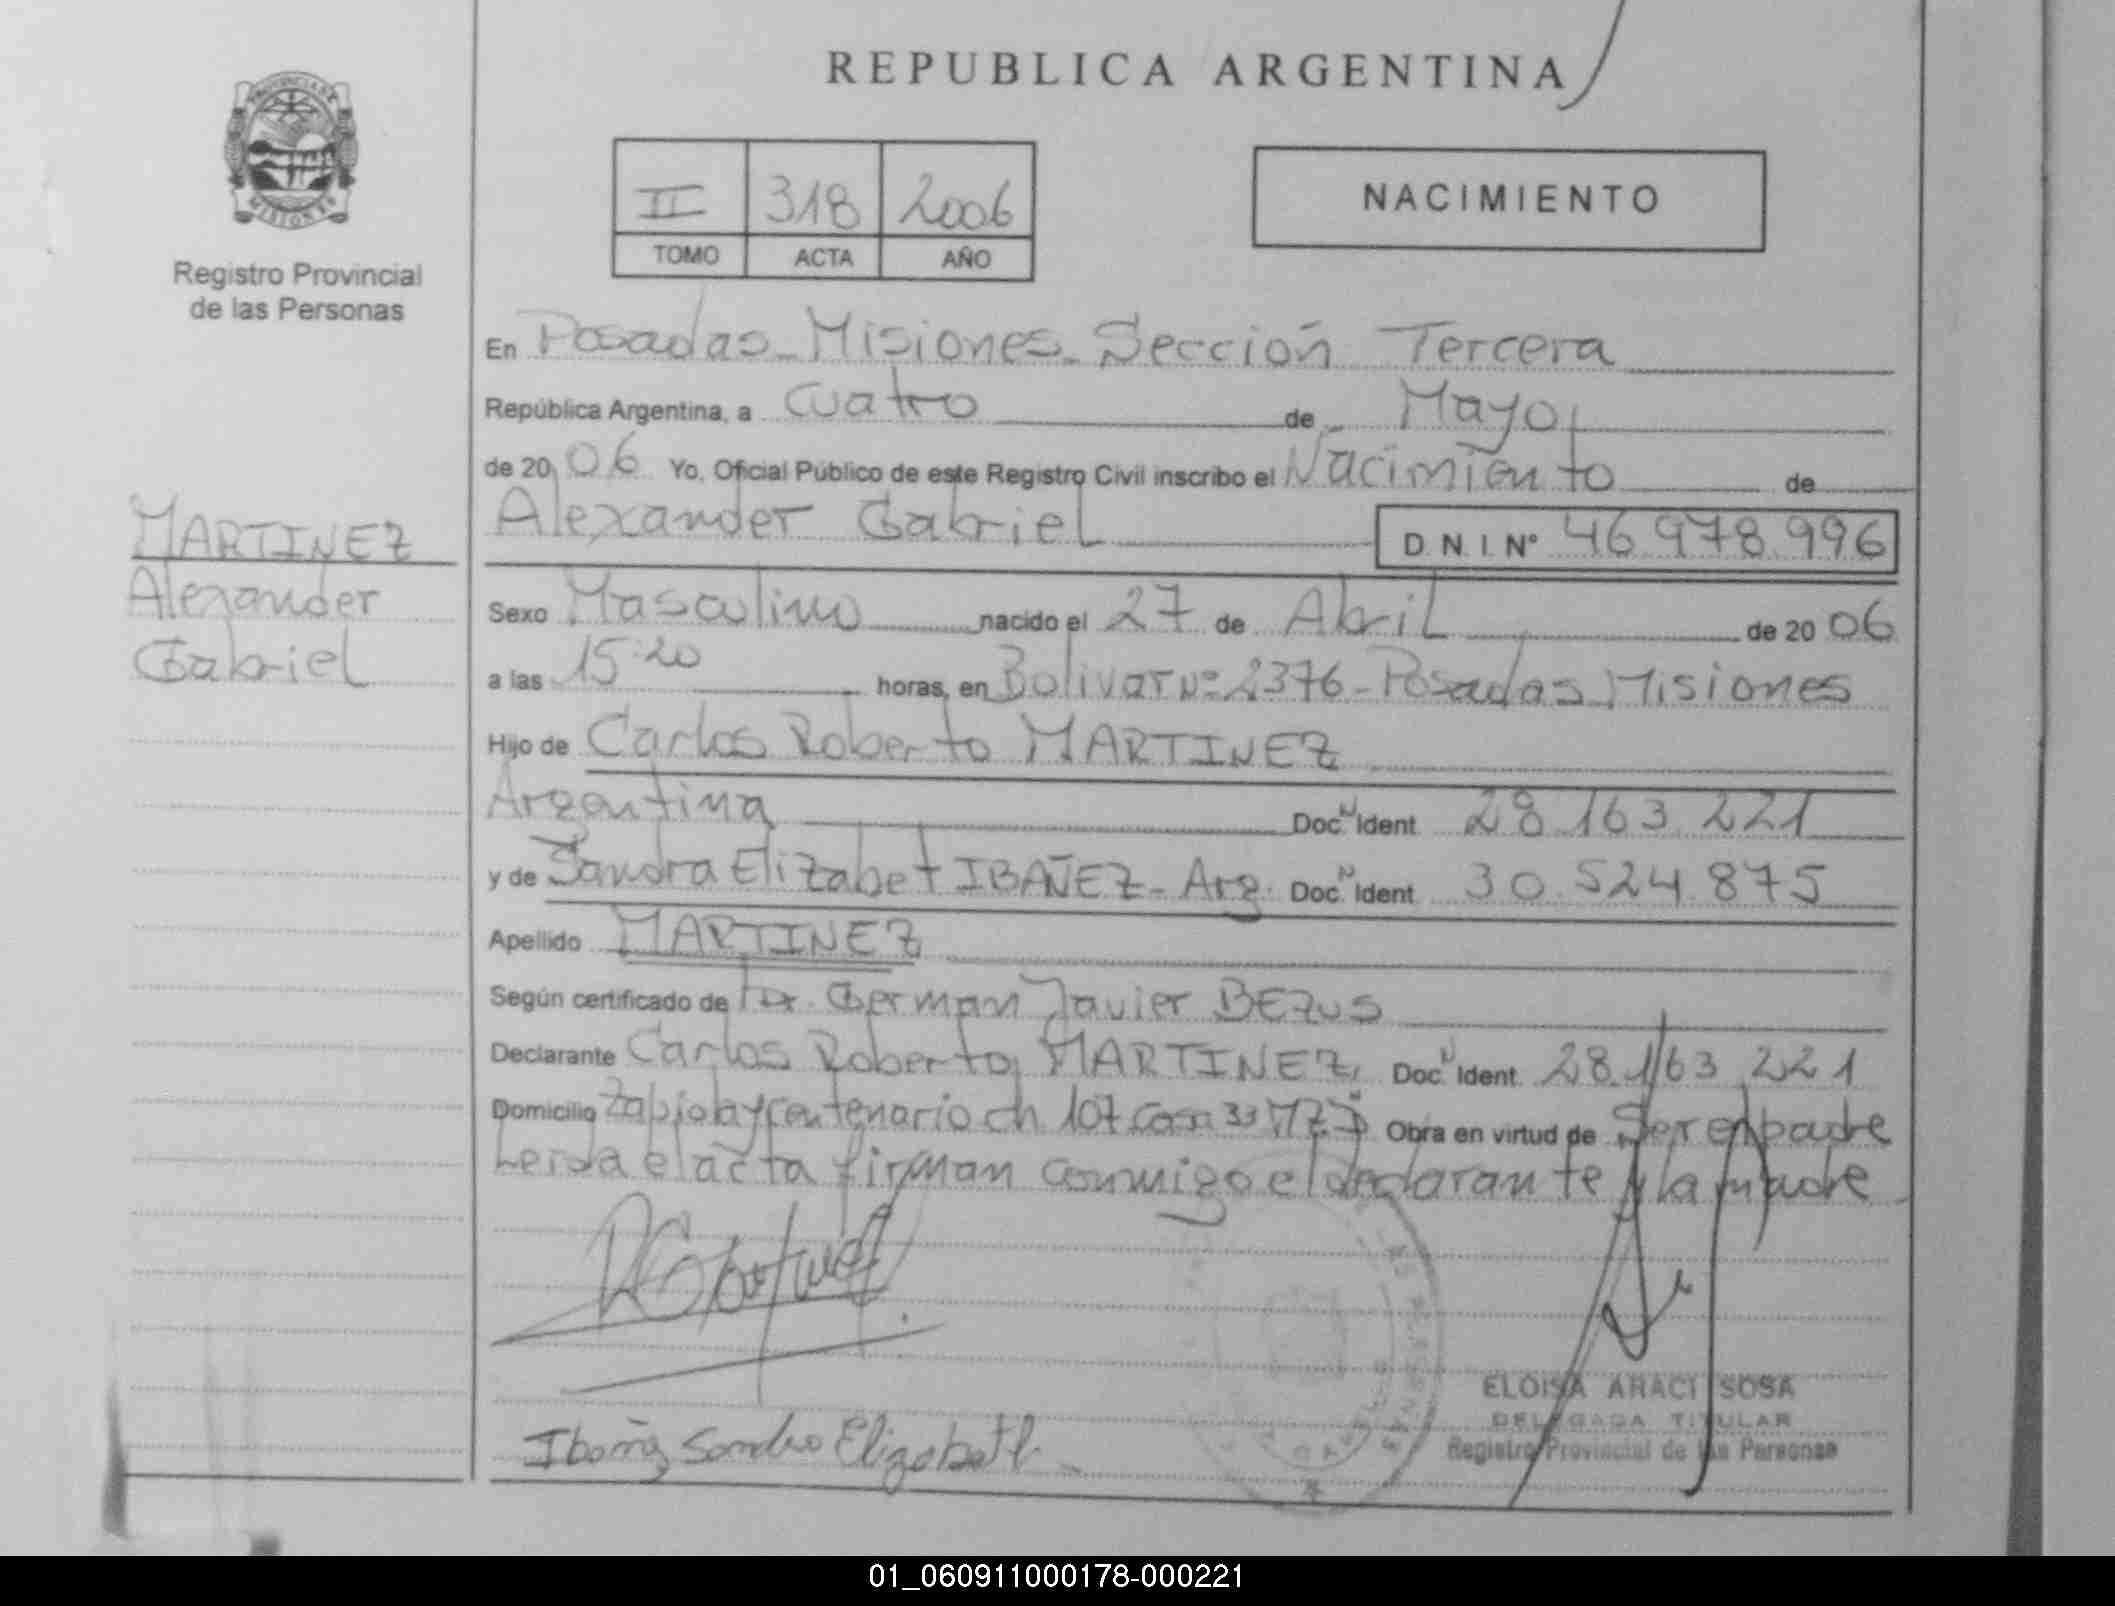 REPUBLICA ARGENTINA
PROVINCIA DE
MISIONES
Registro Provincial
de las Personas
II 318 2006
TOMO ACTA AÑO
NACIMIENTO
MARTINEZ
Alexander
Gabriel
En Posadas - Misiones - Sección Tercera
República Argentina, a cuatro de Mayo
de 2006 Yo, Oficial Público de este Registro Civil inscribo el Nacimiento de
Alexander Gabriel D.N.I Nº 46 978 996
Sexo Masculino nacido el 27 de Abril de 2006
a las 15:20 horas, en Bolivar Nº 2376 - Posadas Misiones
Hijo de Carlos Roberto MARTINEZ
Argentina Doc. N Ident 28 163 221
y de Sandra Elizabet IBAÑEZ - Arg. Doc. N Ident 30.524.875
Apellido MARTINEZ
Según certificado de Dr. German Javier BEZUS
Declarante Carlos Roberto MARTINEZ, Doc. N Ident 28.163 221
Domicilio Zapiola y Centenario ch 107 Casa 33 Obra en virtud de Ser el padre
Leida el acta firman conmigo el declarante y la madre
Ibañez Sandra Elizabeth
ELOISA ARACI SOSA
DELEGADA TITULAR
Registro Provincial de las Personas
01_060911000178-000221